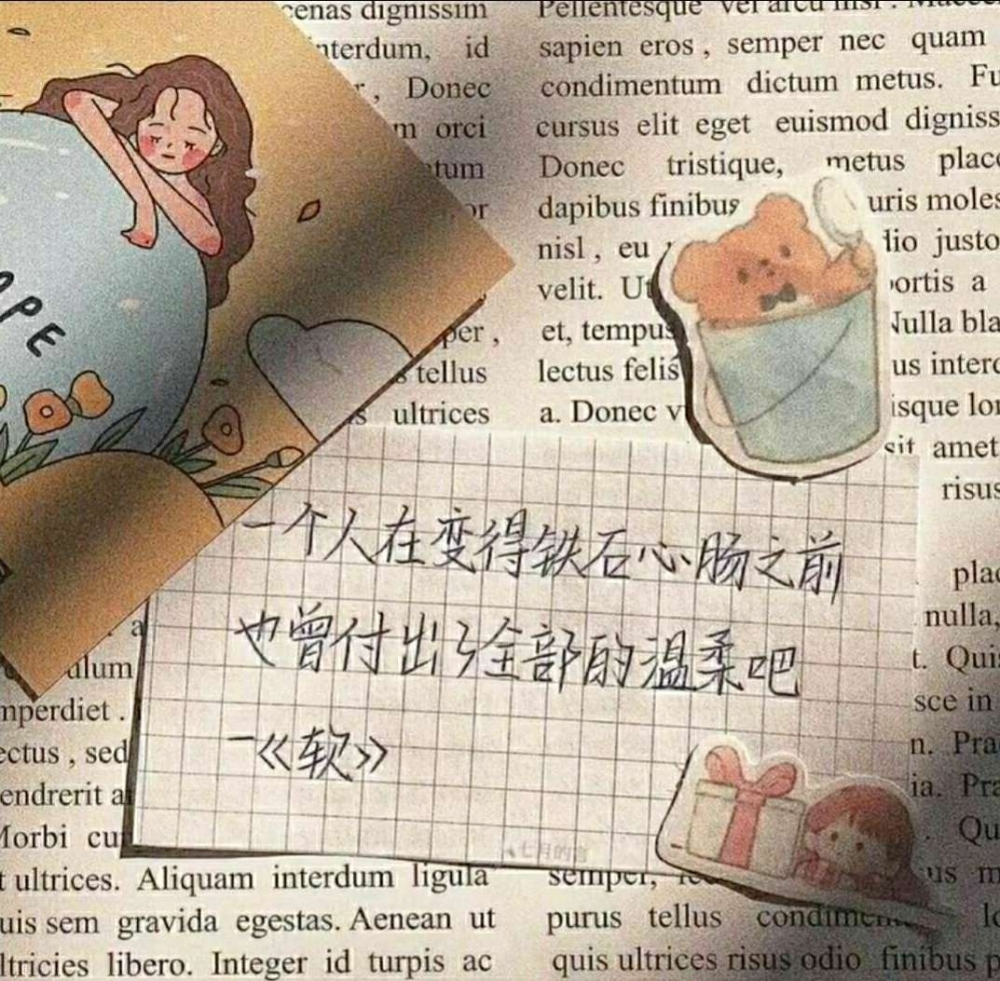 cenas dignissim
nterdum, id
, Donec
m orci
tum
or
per ,
tellus
ultrices
OPE
Pellentesque vel arcu nisl .
sapien eros , semper nec quam
condimentum dictum metus. Fu
cursus elit eget euismod digniss
Donec tristique, metus place
dapibus finibus uris moles
nisl , eu dio justo
velit. Ut ortis a
et, tempus Nulla bla
lectus felis us interd
a. Donec v isque lor
sit amet
risus
一个人在变得铁石心肠之前
也曾付出了全部的温柔吧
—《软》
a
ulum
mperdiet .
ectus , sed
endrerit a
Morbi cu
t ultrices. Aliquam interdum ligula
uis sem gravida egestas. Aenean ut
ltricies libero. Integer id turpis ac
plac
nulla,
t. Quis
sce in
n. Pra
ia. Pra
. Qu
us m
semper,
purus tellus condimen
quis ultrices risus odio finibus p